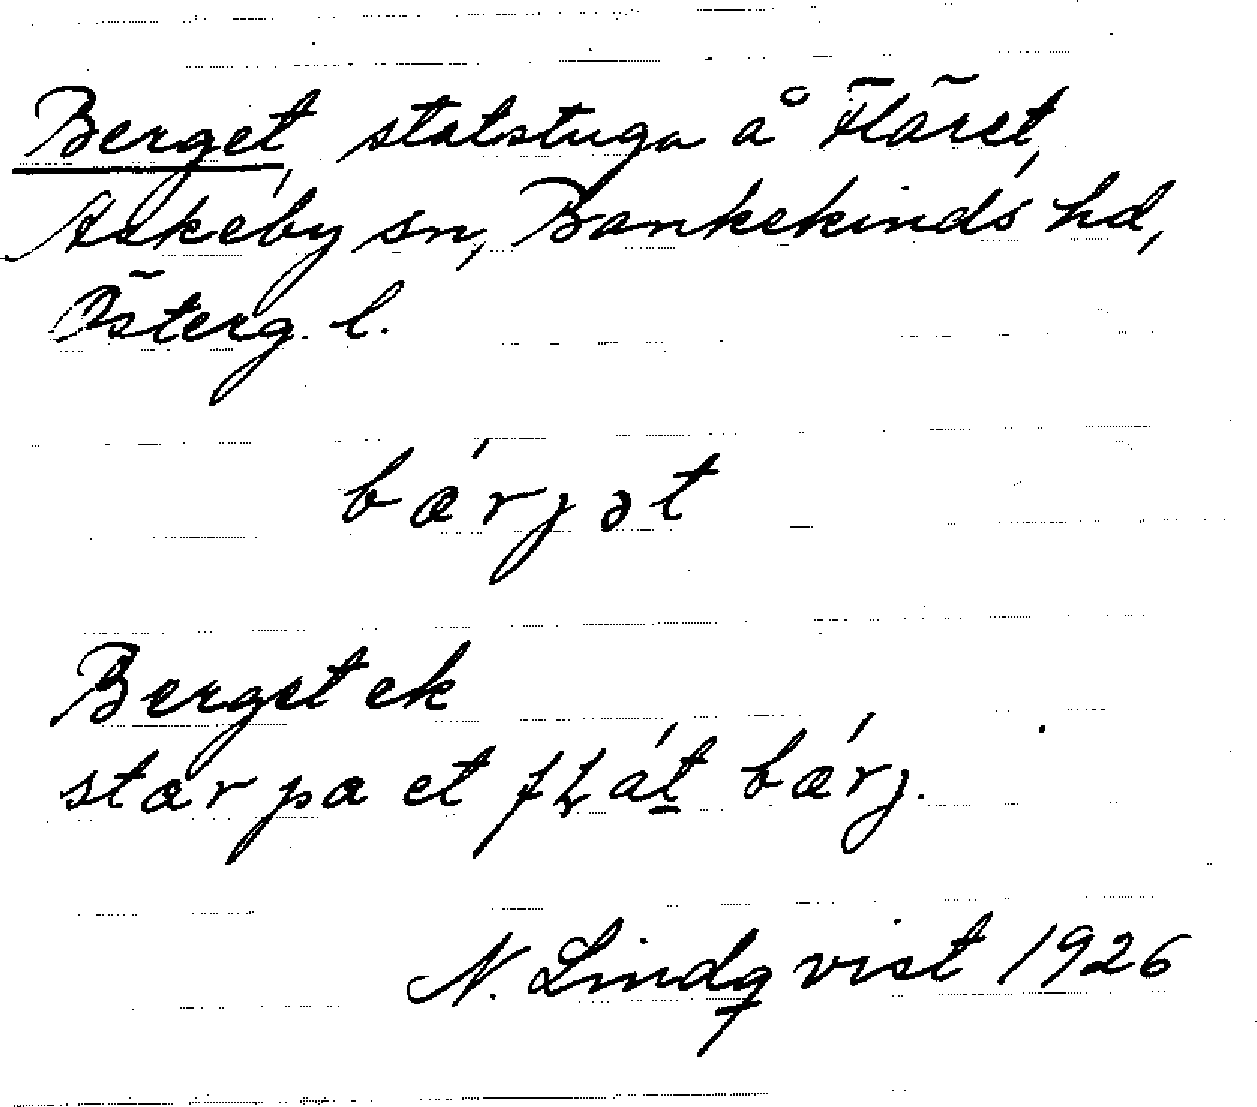 Berget, statstuga å Fläret,
Askeby sn, Bankekinds hd,
Österg. l.
bǽrjət
Berget ek
stær pa et fɽát bǽrj.
N. Lindqvist 1926